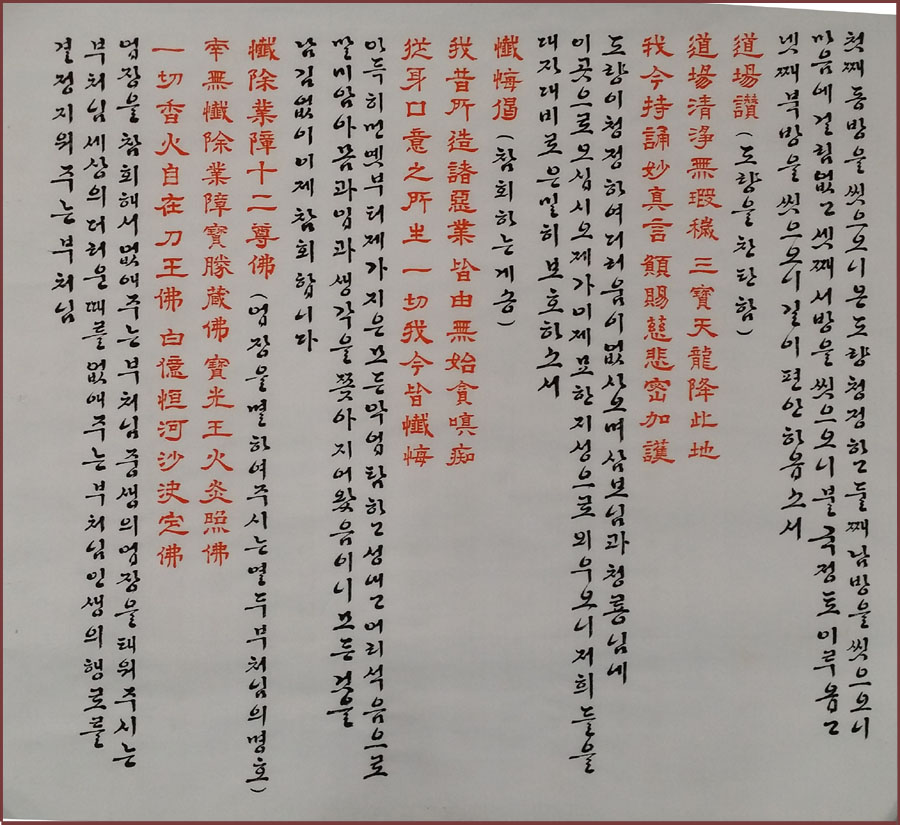 첫째 동방을 씻으오니 온도량 청정하고 둘째 남방을 씻으오니
마음에 걸림없고 셋째 서방을 씻으오니 불국정토 이루옵고
넷째 북방을 씻으오니 길이 편안하옵소서
道場讚 (도량을 찬탄함)
道場清淨無瑕穢 三寶天龍降此地
我今持誦妙真言 願賜慈悲密加護
도량이 청정하여 더러움이 없사오며 삼보님과 청룡님네
이곳으로 오십시오 제가 이제 묘한 지성으로 외우오니 저희들을
대자대비로 은밀히 보호하소서
懺悔偈 (참회하는 게송)
我昔所造諸惡業 皆由無始貪嗔痴
從身口意之所生 一切我今皆懺悔
아득히 먼 옛부터 제가 지은 모든 악업 탐하고 성내고 어리석음으로
말미암아 몸과 입과 생각을 쫓아 지어왔음이니 모든 것을
남김없이 이제 참회합니다
懺除業障十二尊佛 (업장을 멸하여 주시는 열두 부처님의 명호)
南無懺除業障寶勝藏佛 寶光王火炎照佛
一切香火自在力王佛 白億恒河沙決定佛
업장을 참회해서 없애주는 부처님 중생의 업장을 태워주시는
부처님 세상의 더러운 때를 없애주는 부처님 인생의 행로를
결정지워주는 부처님